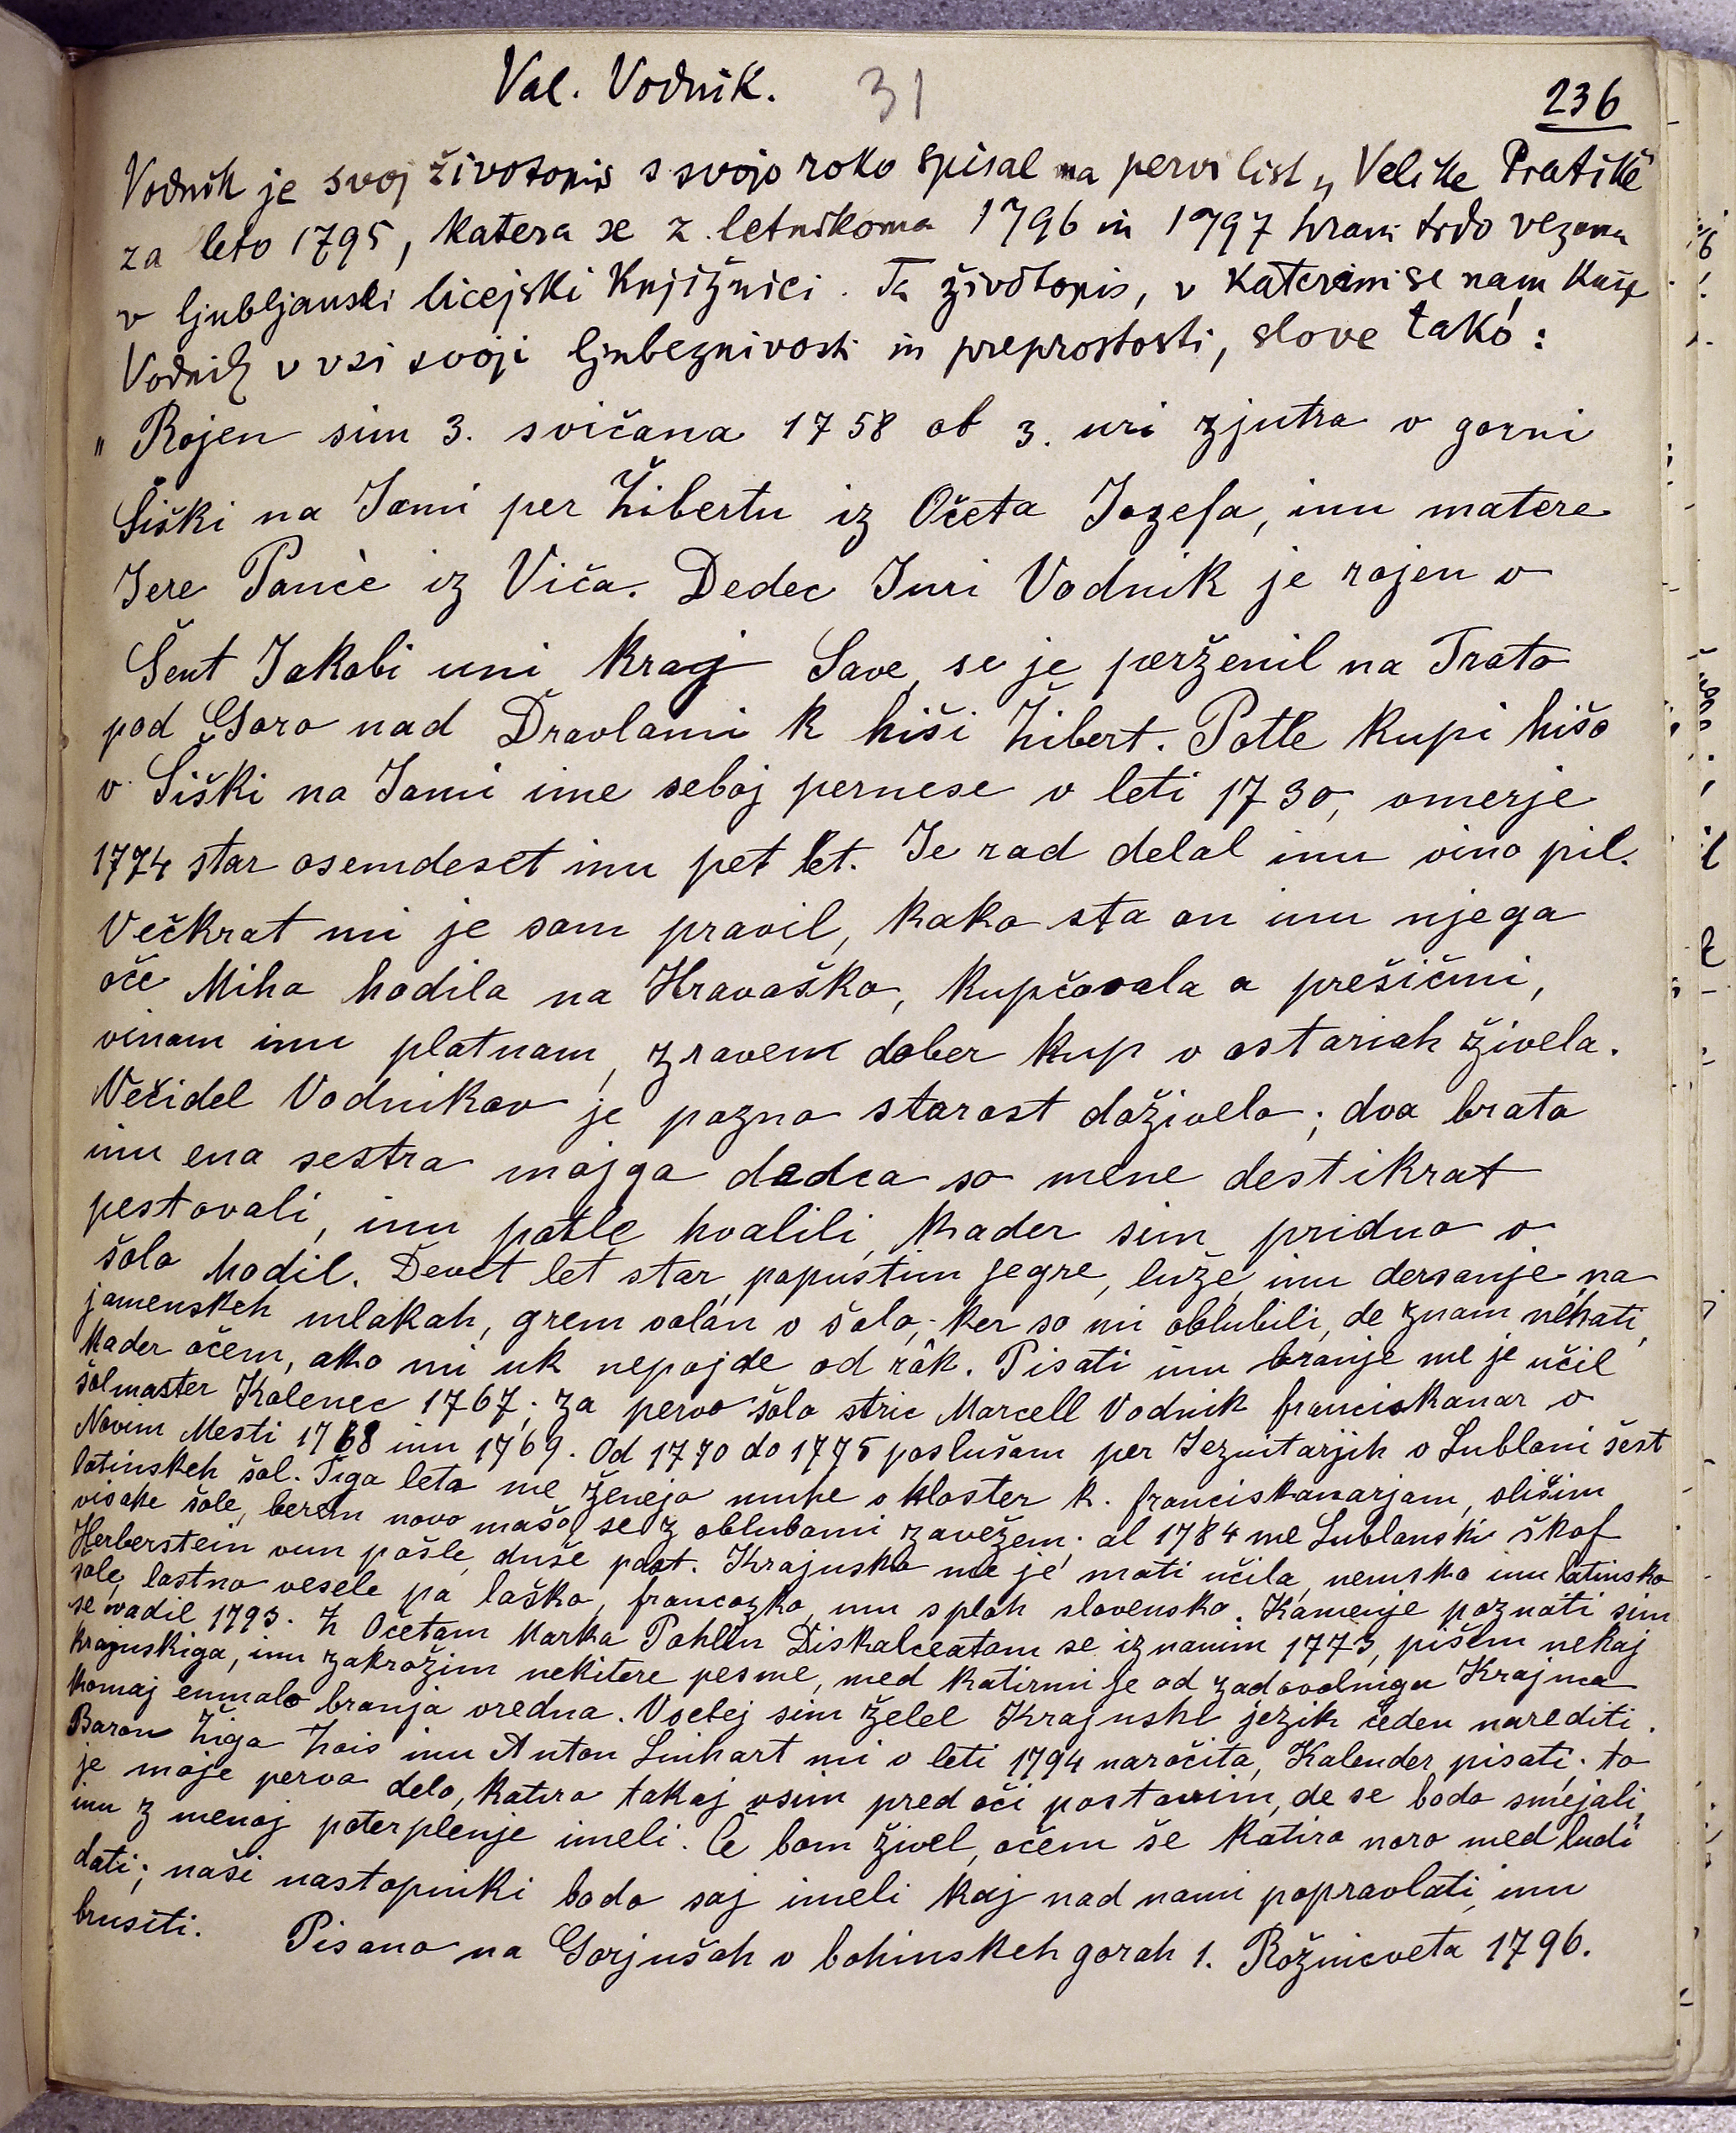 Val. Vodnik. 31 236
Vodnik je svoj životopis s svojo roko spisal na pervi list „Velike Pratike
za leto 1795, katera se z letnikoma 1796 in 1797 hrani trdo vezana
v ljubljanski licejski knjižnici. Ta životopis, v katerim se nam kaže
Vodnik v vsi svoji ljubeznivosti in preprostosti, slove tako:
„Rojen sim 3. svičana 1758 ob 3. uri zjutra v gorni
Šiški na Jami per Žibertu iz Očeta Jozefa, inu matere
Jere Pance iz Viča. Dedec Juri Vodnik je rojen v
Šent Jakobi uni kraj Save, se je perženil na Trato
pod Goro nad Dravlami k hiši Žibert. Potle kupi hišo
v Šiški na Jami ime seboj pernese v leti 1730, omerje
1774 star osemdeset inu pet let. Je rad delal inu vino pil.
Večkrat mi je sam pravil, kako sta on inu njega
oče Miha hodila na Hravaško, kupčovala s prešičmi,
vinam inu platnam, zravem dober kup v ostariah živela.
Večidel Vodnikov je pozno starost doživelo; dva brata
inu ena sestra mojga dedca so mene destikrat
pestovali, inu potle hvalili, kader sim pridno v
šolo hodil. Devet let star, popustim jegre, luže, inu dersanje na
jamenskeh mlakah, grem volán v šolo, ker so mi oblubili, de znam nehati,
kader očem, ako mi uk nepojde od rôk. Pisati inu branje me je učil
šolmaster Kolenec 1767; za pervo šolo stric Marcell Vodnik franciskanar v
Novim Mesti 1768 inu 1769. Od 1770 do 1775 poslušam per Jezuitarjih v Lublani šest
latinskeh šol. Tiga leta me ženejo muhe v kloster k. franciskanarjam, slišim
visoke šole, berem novo mašo, se z oblubami zavežem; al 1784 me Lublanski škof
Herberstein vun pošle, duše past. Krajnsko me je mati učila, nemsko inu latinsko
šole, lastno vesele pa laško, francozko, inu sploh slovensko. Kamenje poznati sim
se vadil 1793. Z Očetam Marka Pohlin Diskalceatam se iznanim 1773, pišem nekaj
krajnskiga, inu zakrožim nekitere pesme, med katirmi je od zadovolniga Krajnca
komaj enmalo branja vredna. Vselej sim želel Krajnski jezik čeden narediti.
Baron Žiga Zois inu Anton Linhart mi v leti 1794 naročita, Kalender pisati; to
je moje pervo delo, katiro tokaj vsim pred oči postavim, de se bodo smejali,
inu z menoj poterplenje imeli. Če bom živel, očem še katiro noro med ludi
dati; naši nastopniki bodo saj imeli kaj nad nami popravlati, inu
brusiti. Pisano na Gorjušah v bohinskeh gorah 1. Rožnicveta 1796.